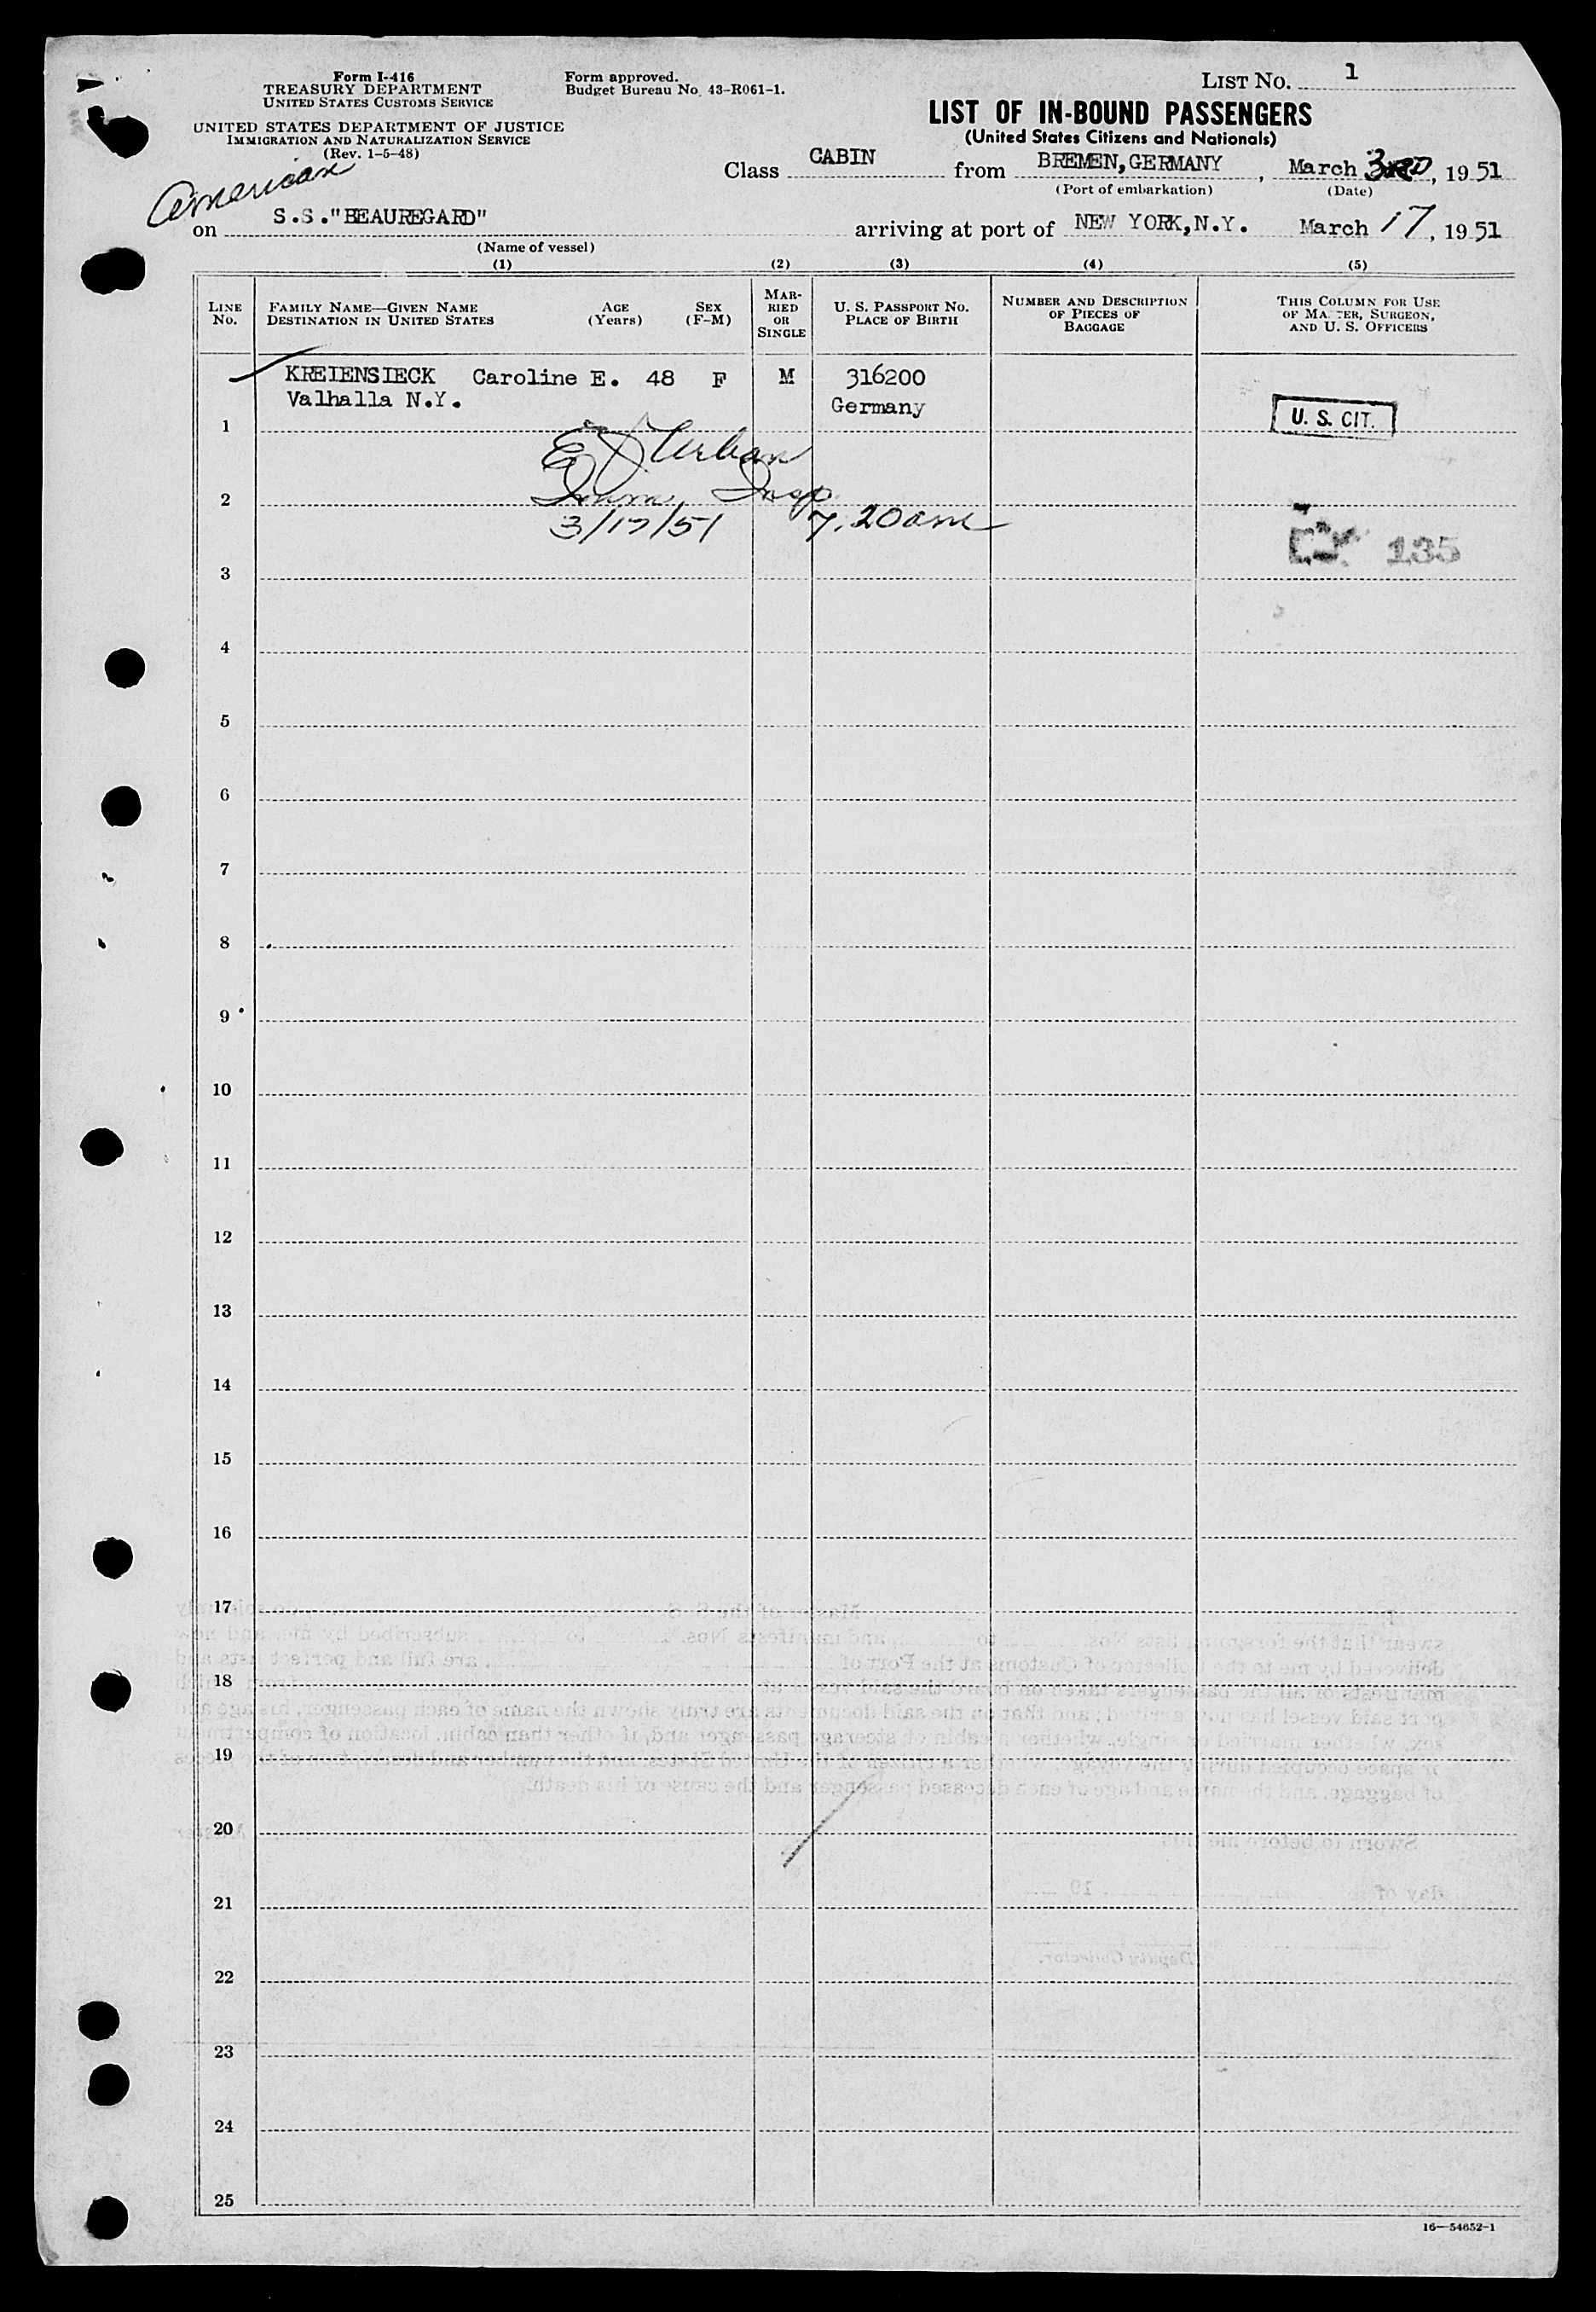 Form I-416
TREASURY DEPARTMENT
UNITED STATES CUSTOMS SERVICE
UNITED STATES DEPARTMENT OF JUSTICE
IMMIGRATION AND NATURALIZATION SERVICE
(Rev. 1-5-48)
Form approved.
Budget Bureau No. 43-R061-1.
LIST NO. 1
LIST OF IN-BOUND PASSENGERS
(United States Citizens and Nationals)
Class CABIN from BREMEN, GERMANY, March 3RD, 1951
(Port of embarkation) (Date)
American
on S.S."BEAUREGARD" arriving at port of NEW YORK, N.Y. March 17, 1951
(Name of vessel)
(1) (2) (3) (4) (5)
LINE NO.
FAMILY NAME—GIVEN NAME AGE SEX
DESTINATION IN UNITED STATES (Years) (F-M)
MARRIED OR SINGLE
U. S. PASSPORT NO.
PLACE OF BIRTH
NUMBER AND DESCRIPTION
OF PIECES OF
BAGGAGE
THIS COLUMN FOR USE
OF MASTER, SURGEON,
AND U. S. OFFICERS
KREIENSIECK Caroline E. 48 F M 316200
Valhalla N.Y. Germany
1 U. S. CIT.
Urban
2 Imm. Insp.
3/17/51 7.20am
135
3
4
5
6
7
8
9
10
11
12
13
14
15
16
17
18
19
20
21
22
23
24
25
16—54652-1